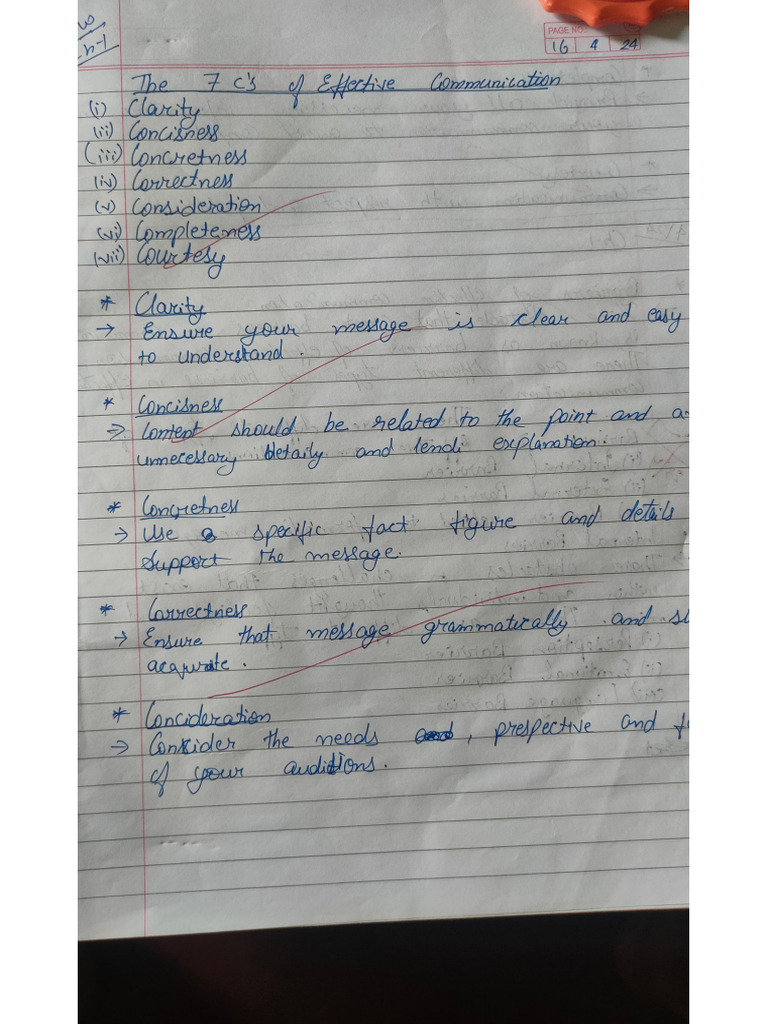 W
h-1
PAGE NO.:
16 4 24
The 7 C's of Effective Communication
(i) Clarity
(ii) Concisness
(iii) Concretness
(iv) Correctness
(v) Consideration
(vi) Completeness
(vii) Courtesy
* Clarity
→ Ensure your message is clear and easy
to understand.
* Concisness
→ Content should be related to the point and a
unnecessary detaily and lendi explanation.
* Concretness
→ Use a specific fact figure and details
support the message.
* Correctness
→ Ensure that message grammatically and
acqurate.
* Concideration
→ Consider the needs , prespective and
of your auditions.